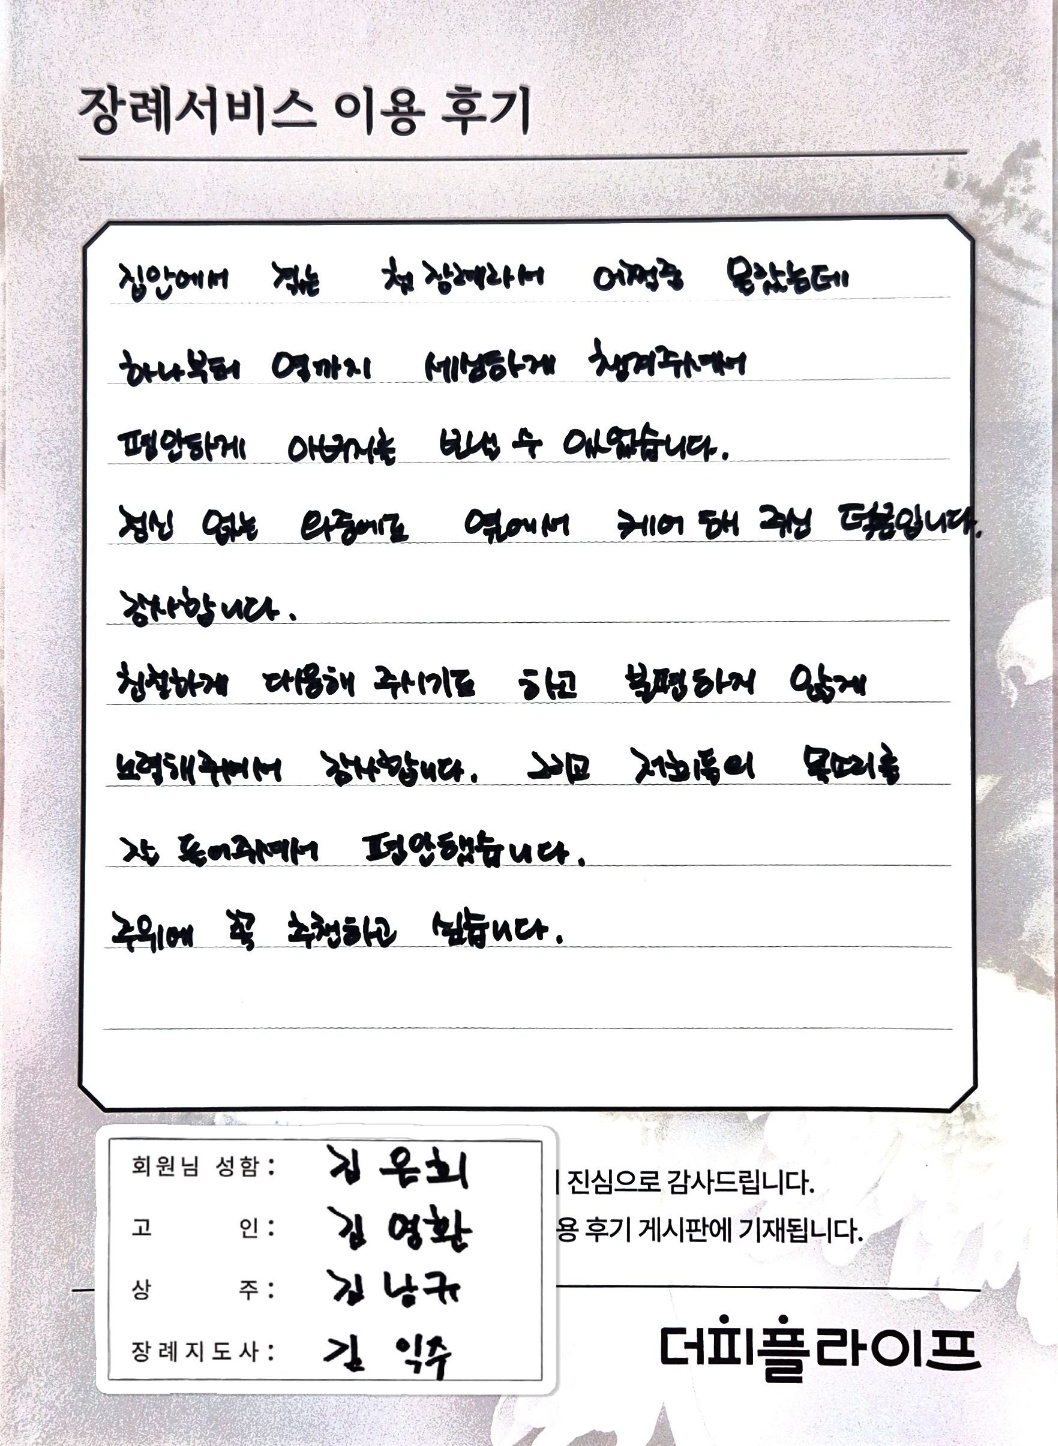 장례서비스 이용 후기
집안에서 겪는 첫 장례라서 어쩔줄 몰랐는데
하나부터 열까지 세심하게 챙겨주셔서
평안하게 아버지를 보낼 수 있었습니다.
정신 없는 와중에도 옆에서 케어 해 주신 덕분입니다.
감사합니다.
친절하게 대응해 주시기도 하고 불평하지 않게
노력해주셔서 감사합니다. 그리고 저희들의 목소리를
잘 들어주셔서 평안했습니다.
주위에 꼭 추천하고 싶습니다.
회원님 성함 : 김은희
진심으로 감사드립니다.
고 인 : 김영환
용 후기 게시판에 기재됩니다.
상 주 : 김남규
장례지도사 : 김익주
더피플라이프